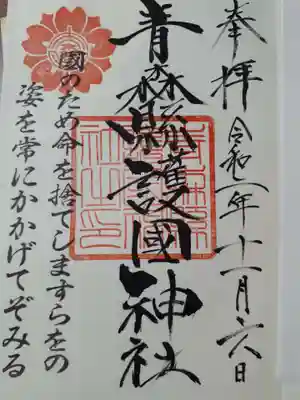 奉拝 令和二年十一月六日
青森縣護國神社
國のため命を捨てしますらをの
姿を常にかかげてぞみる